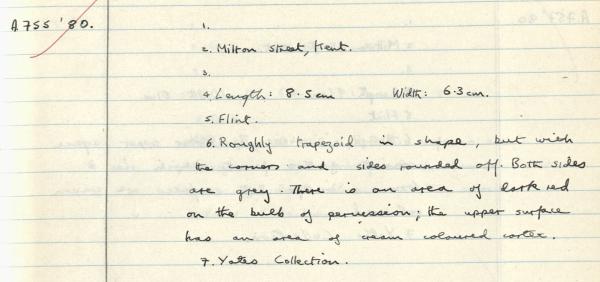 A755 '80.
1.
2. Milton Street, Kent.
3.
4. Length: 8.5cm Width: 6.3cm.
5. Flint.
6. Roughly trapezoid in shape, but with
the corners and sides rounded off. Both sides
are grey. There is an area of dark red
on the bulb of percussion; the upper surface
has an area of cream coloured cortex.
7. Yates Collection.